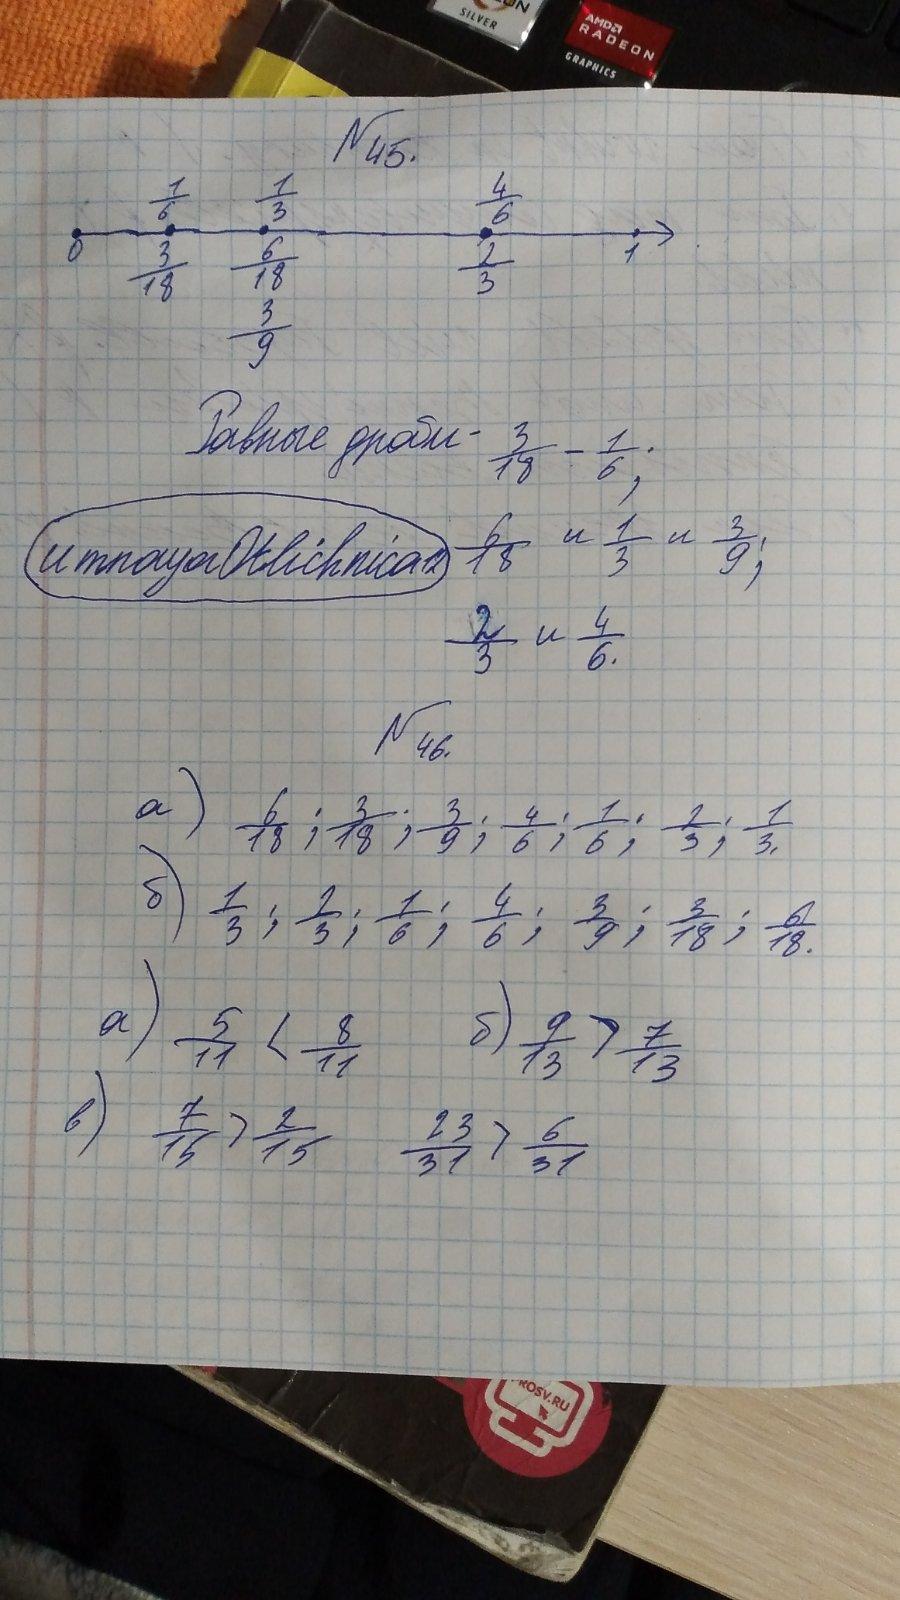 SILVER
AMD
RADEON
GRAPHICS
N 45.
1/6 1/3 4/6
0 1
3/18 6/18 2/3
3/9
Равные дроби - 3/18 - 1/6;
umnayaOtlichnica12 6/18 и 1/3 и 3/9;
2/3 и 4/6.
N 46.
а) 6/18; 3/18; 3/9; 4/6; 1/6; 2/3; 1/3.
б) 1/3; 2/3; 1/6; 4/6; 3/9; 3/18; 6/18.
а) 5/11 < 8/11 б) 9/13 > 7/13
в) 7/15 > 2/15 23/31 > 6/31
PROSV.RU